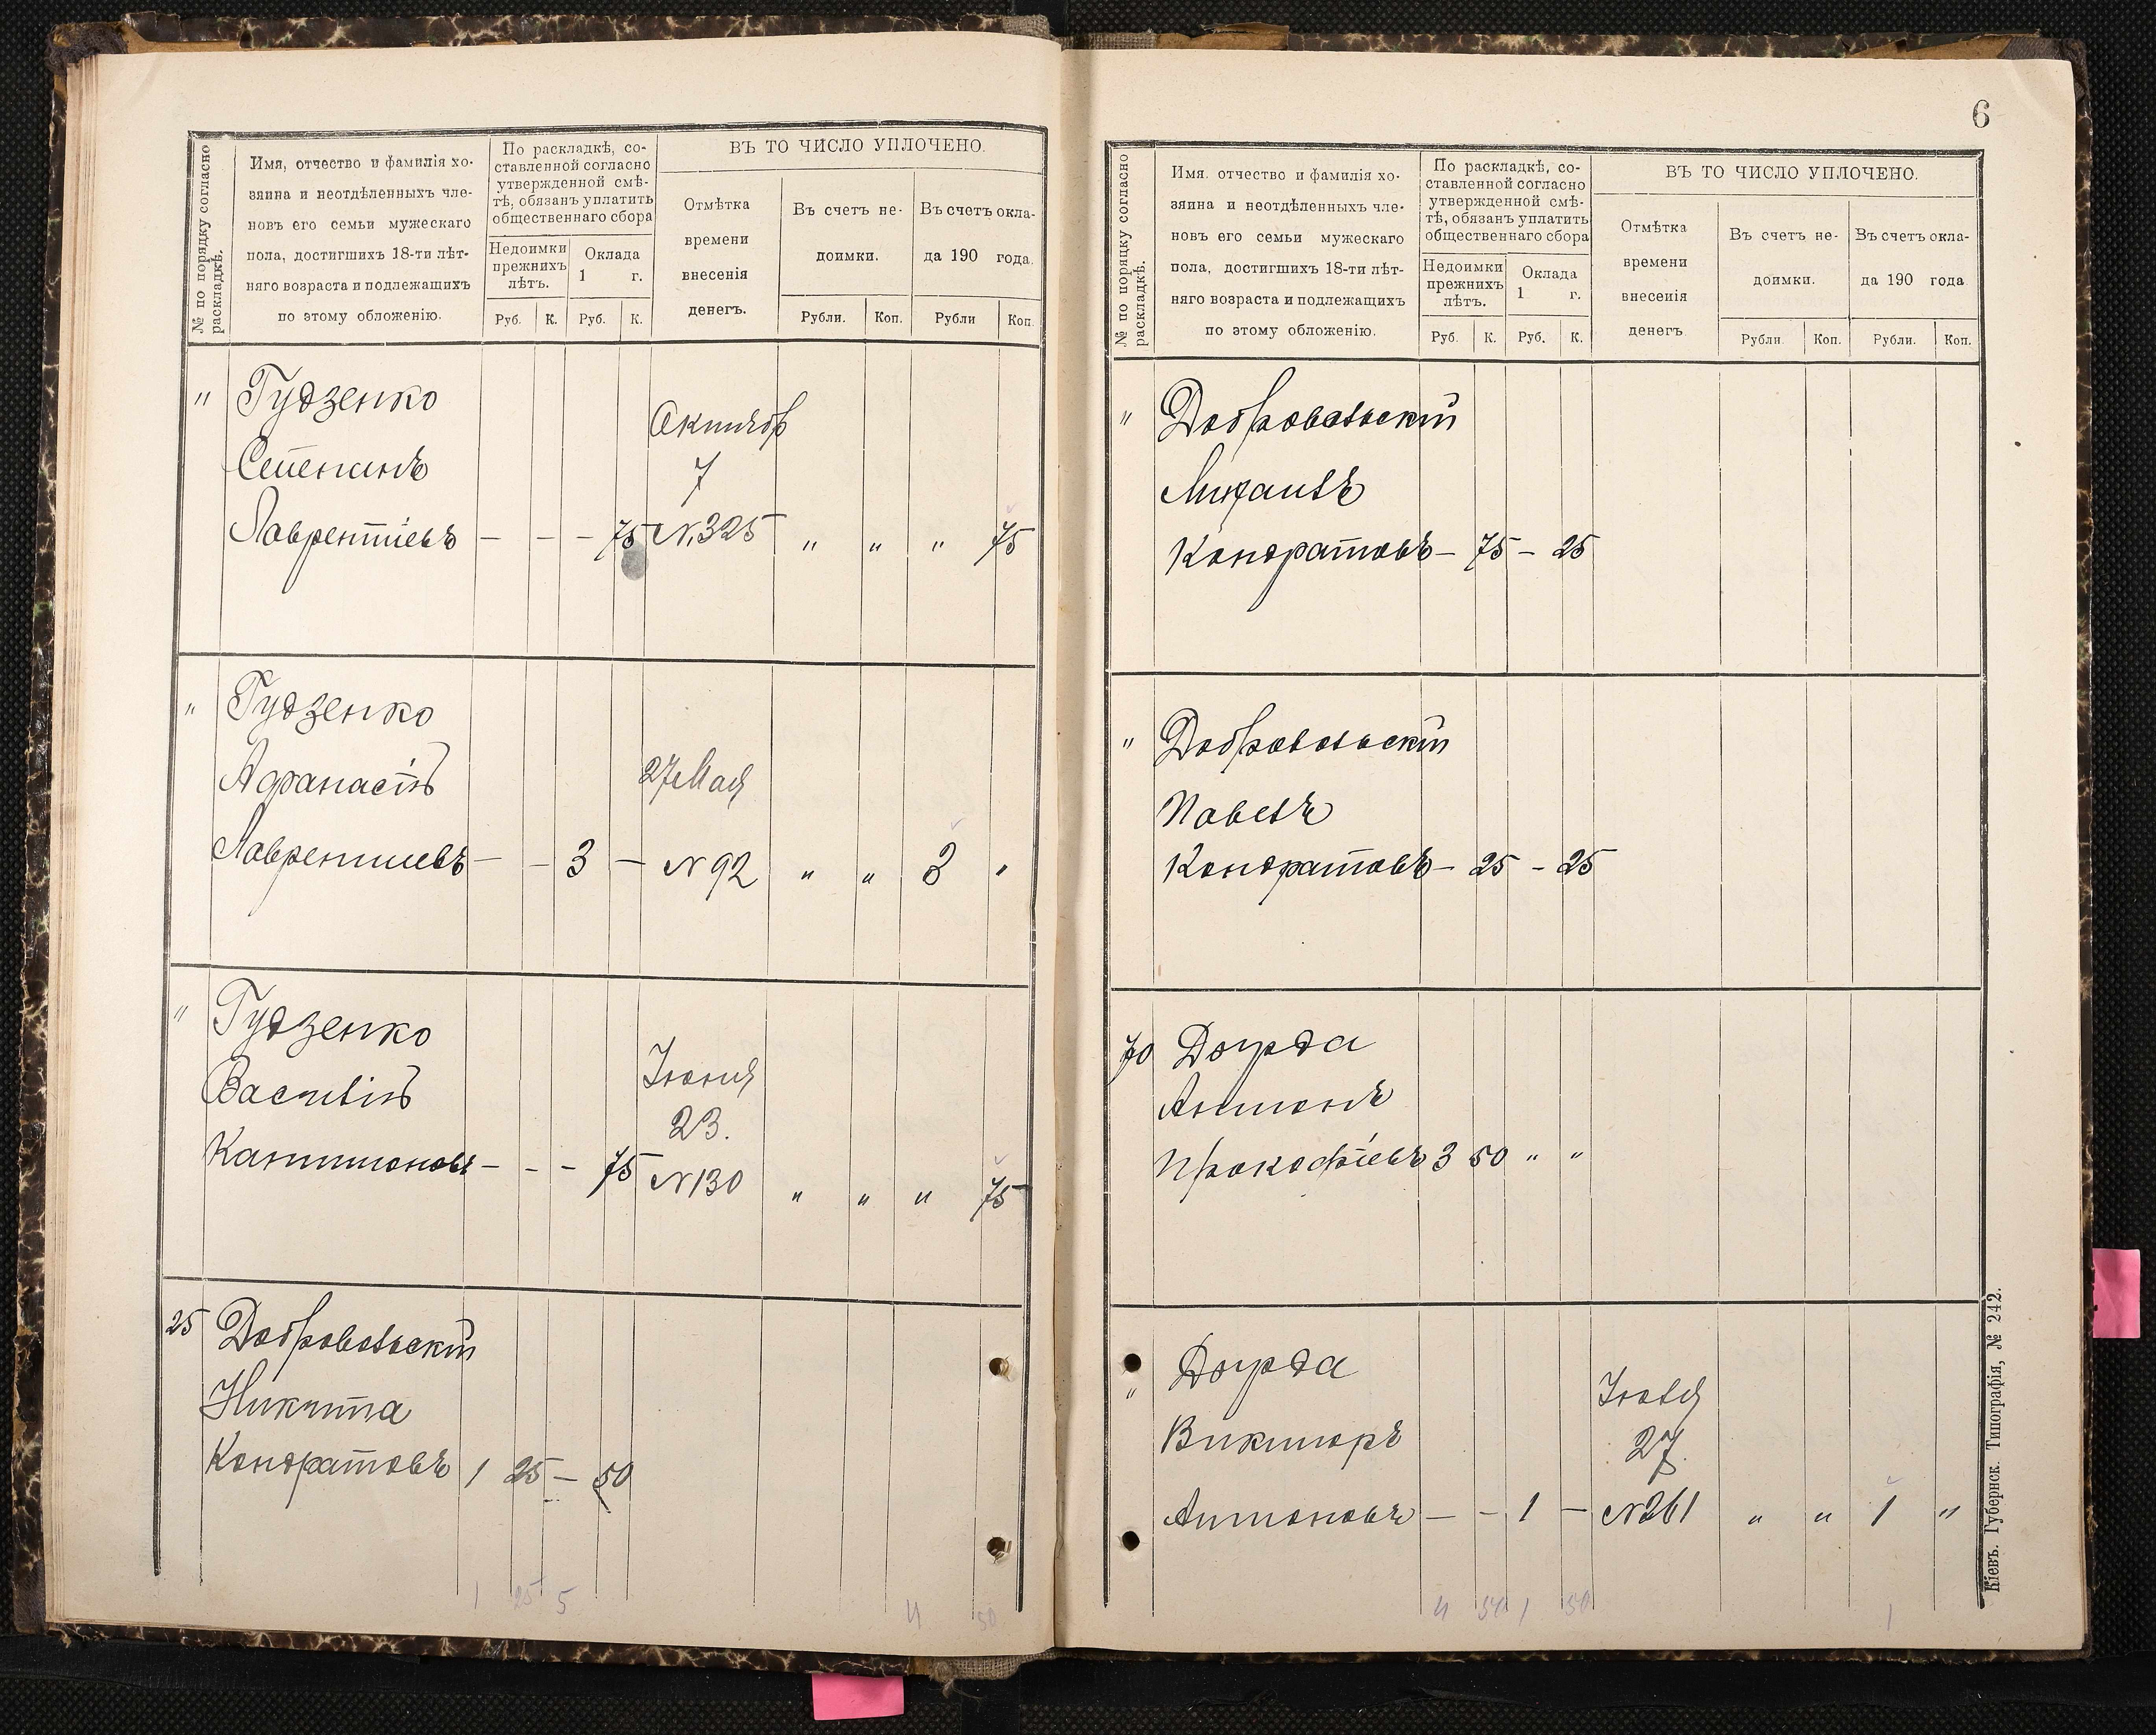 № по порядку согласно
раскладкѣ.
Имя, отчество и фамилія хо-
зяина и неотдѣленныхъ чле-
новъ его семьи мужескаго
пола, достигшихъ 18-ти лѣт-
няго возраста и подлежащихъ
по этому обложенію.
По раскладкѣ, со-
ставленной согласно
утвержденной смѣ-
тѣ, обязанъ уплатить
общественнаго сбора
Недоимки
прежнихъ
лѣтъ.
Оклада
1 г.
Руб. К. Руб. К.
ВЪ ТО ЧИСЛО УПЛОЧЕНО.
Отмѣтка
времени
внесенія
денегъ.
Въ счетъ не-
доимки.
Въ счетъ окла-
да 190 года.
Рубли. Коп. Рубли Коп.
" Гудзенко
Степанъ
Октябр
7
Лаврентіевъ — — — 75 № 325 " " " 75
" Гудзенко
Афанасій
27 Мая
Лаврентиевъ — — 3 — № 92 " " 3 "
" Гудзенко
Василій
Іюня
23.
Капитоновъ — — — 75 № 130 " " " 75
25 Добровольскій
Никита
Кондратовъ 1 25 — 50
1 25 5 4 50
6
№ по порядку согласно
раскладкѣ.
Имя. отчество и фамилія хо-
зяина и неотдѣленныхъ чле-
новъ его семьи мужескаго
пола, достигшихъ 18-ти лѣт-
няго возраста и подлежащихъ
по этому обложенію.
По раскладкѣ, со-
ставленной согласно
утвержденной смѣ-
тѣ, обязанъ уплатить
общественнаго сбора
Недоимки
прежнихъ
лѣтъ.
Оклада
1 г.
Руб. К. Руб. К.
ВЪ ТО ЧИСЛО УПЛОЧЕНО.
Отмѣтка
времени
внесенія
денегъ
Въ счетъ не-
доимки.
Въ счетъ окла-
да 190 года
Рубли Коп. Рубли. Коп.
" Добровольскій
Михаилъ
Кондратовъ — 75 — 25
" Добровольскій
Павелъ
Кондратовъ — 25 — 25
70 Доурда
Антонъ
Прокофіевъ 3 50 " "
" Доурда
Викторъ
Іюля
27.
Антоновъ — — 1 — № 261 " " 1 "
4 50 1 50 1
Кіевъ. Губернск. Типографія, № 242.